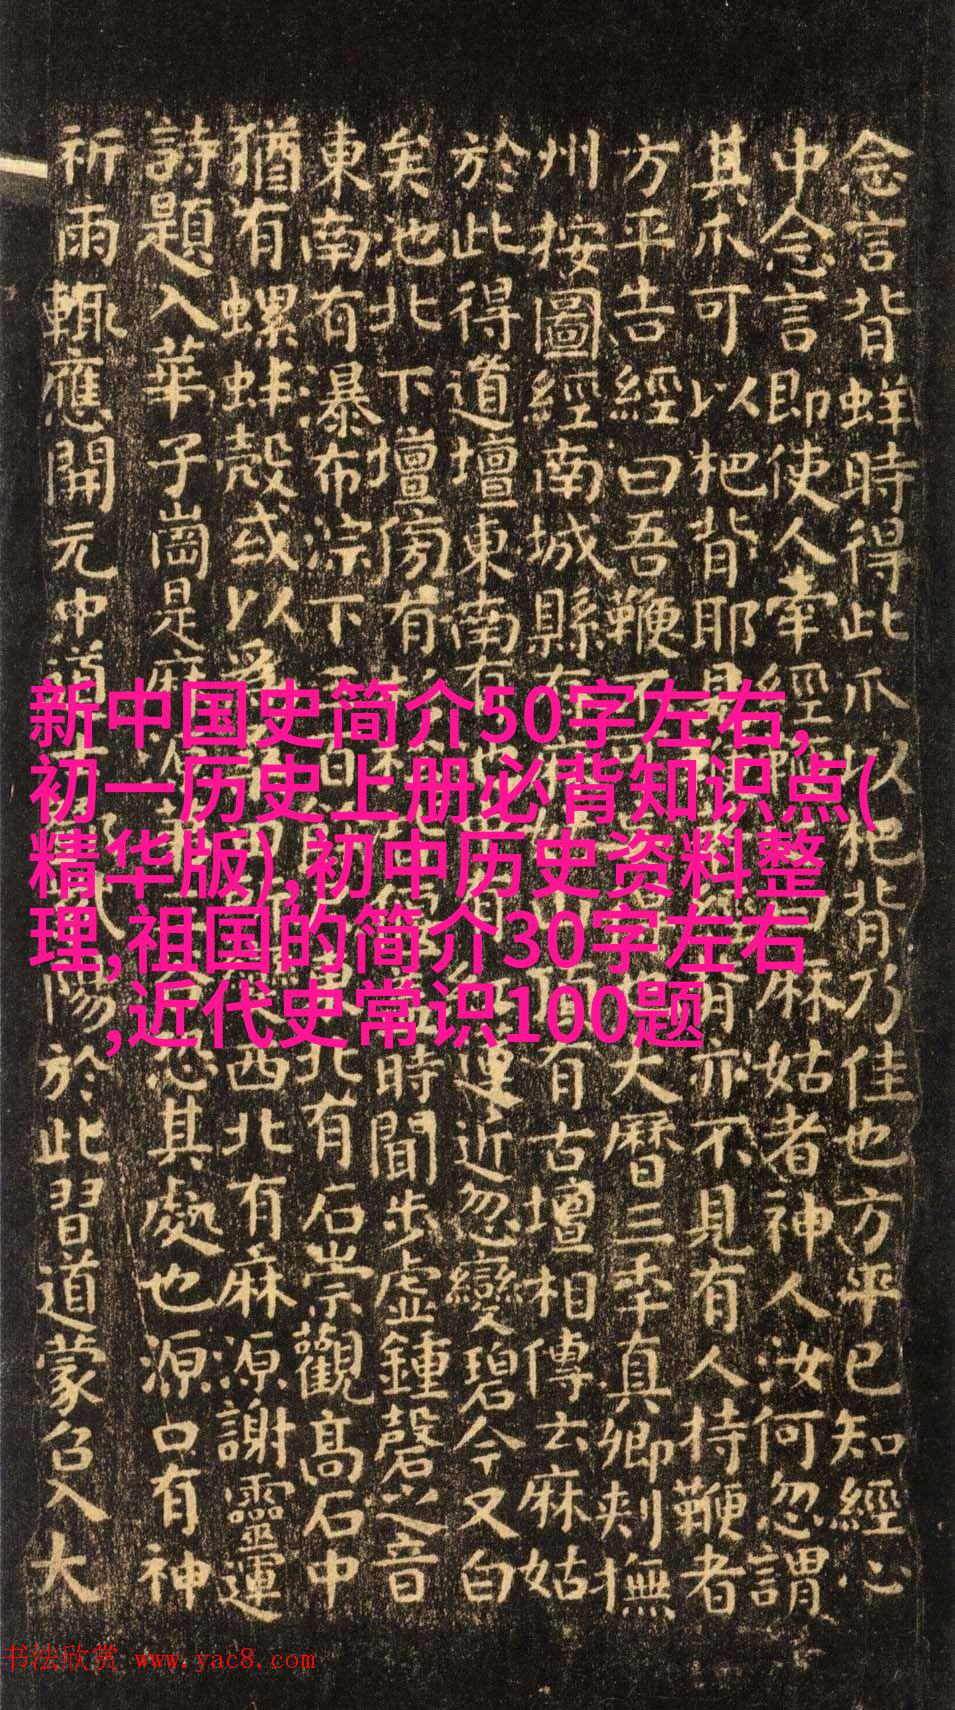 念言背蛘時得此爪以杷背乃佳也方平已知經心
中念言即使人牽經麻姑者神人汝何忽謂
其爪可以杷背耶見有亦不見有人持鞭者
方平告經曰吾鞭不大曆三年真卿刾撫
州按圖經南城縣有麻有古壇相傳云麻姑
於此得道壇東南有近忽變碧今又白
矣池北下壇傍有時聞步虛鍾磬之音
東南有瀑布淙下三北有石崇觀高石中
猶有螺蚌殼或以為西北有麻源謝靈運
詩題入華子崗是麻恐其處也源口有神
祈雨輒應開元中道士陽於此習道蒙召入大
新中国史简介50字左右,
初一历史上册必背知识点(
精华版),初中历史资料整
理,祖国的简介30字左右
,近代史常识100题
书法欣赏 www.yac8.com